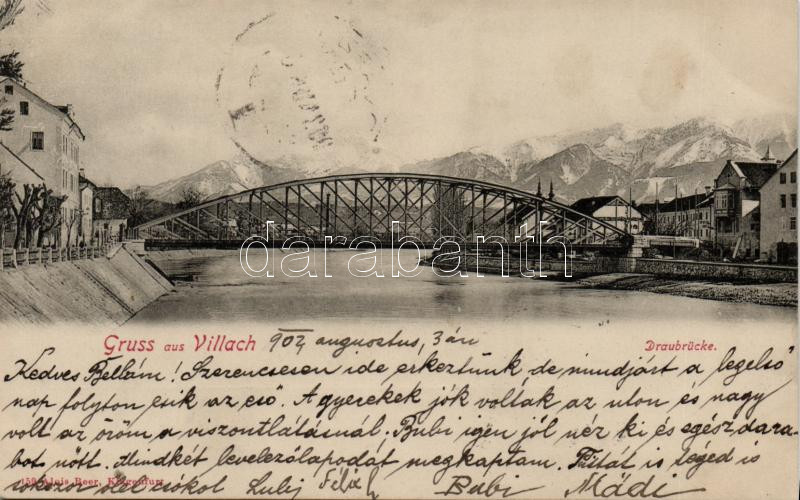 darabanth
Gruss aus Villach 902 augusztus, 3án
Draubrücke.
Kedves Bellám! Szerencsésen ide érkeztünk de mindjárt a legelső
nap folyton esik az eső. A gyerekek jók voltak az uton és nagy
volt az öröm a viszontlátásnál. Bubi igen jól néz ki és egész dara-
bot nőtt. Mindkét levelezőlapodat megkaptam. is téged is
sokszor csókol Bubi Mádi
150 Alois Beer, Klagenfurt